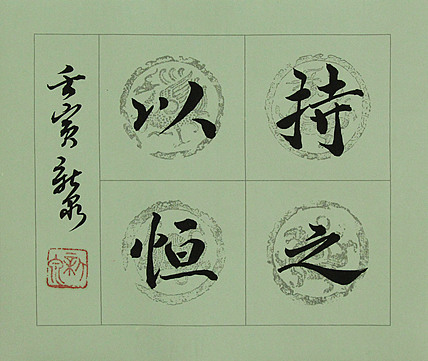 持之
以恒
壬寅